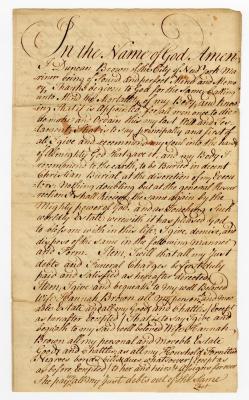 In the Name of God Amen
I Duncan Brown of the City of New York Ma
riner being of Sound and perfect Mind and Memo
ry, Thanks be given to God for the same Calling
unto Mind the Mortality of my Body and know
ing That it is Appointed for all men once to die
do make and Ordain this my last Will and Tes
tament, That is to say Principally and first of
all, I give and recommend my soul into the hands
of Almighty God that gave it, and my Body I
recommend to the Earth, to be Buried in decent
Christian Burial at the discretion of my Execu
tors. Nothing doubting but at the general Resur
rection I shall Receive the same again by the
Mighty power of God, and as touching such
worldly Estate, wherewith it has pleased God
to bless me with in this life, I give, demise, and
dispose of the same in the following manner
and Form. Item, I will that all my Just
debts and Funeral Charges be first
paid and Satisfied as hereafter directed
Item, I give and bequeath to my well Beloved
wife Hannah Brown all my
Estate, and all my Goods and Chattles,
as hereafter Excepted (That is to say) I give and
bequeath to my said well beloved wife Hannah
Brown all my personal and Moveable Estate
Goods and Chattles, as all my Household Furniture
whatsoever, (Except
as before Excepted) to her and heirs & Assigns forever
She paying all my Just debts out of the Same